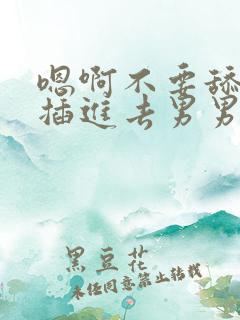 嗯啊不要舔
插進去男男
黑豆花
未经同意禁止转载